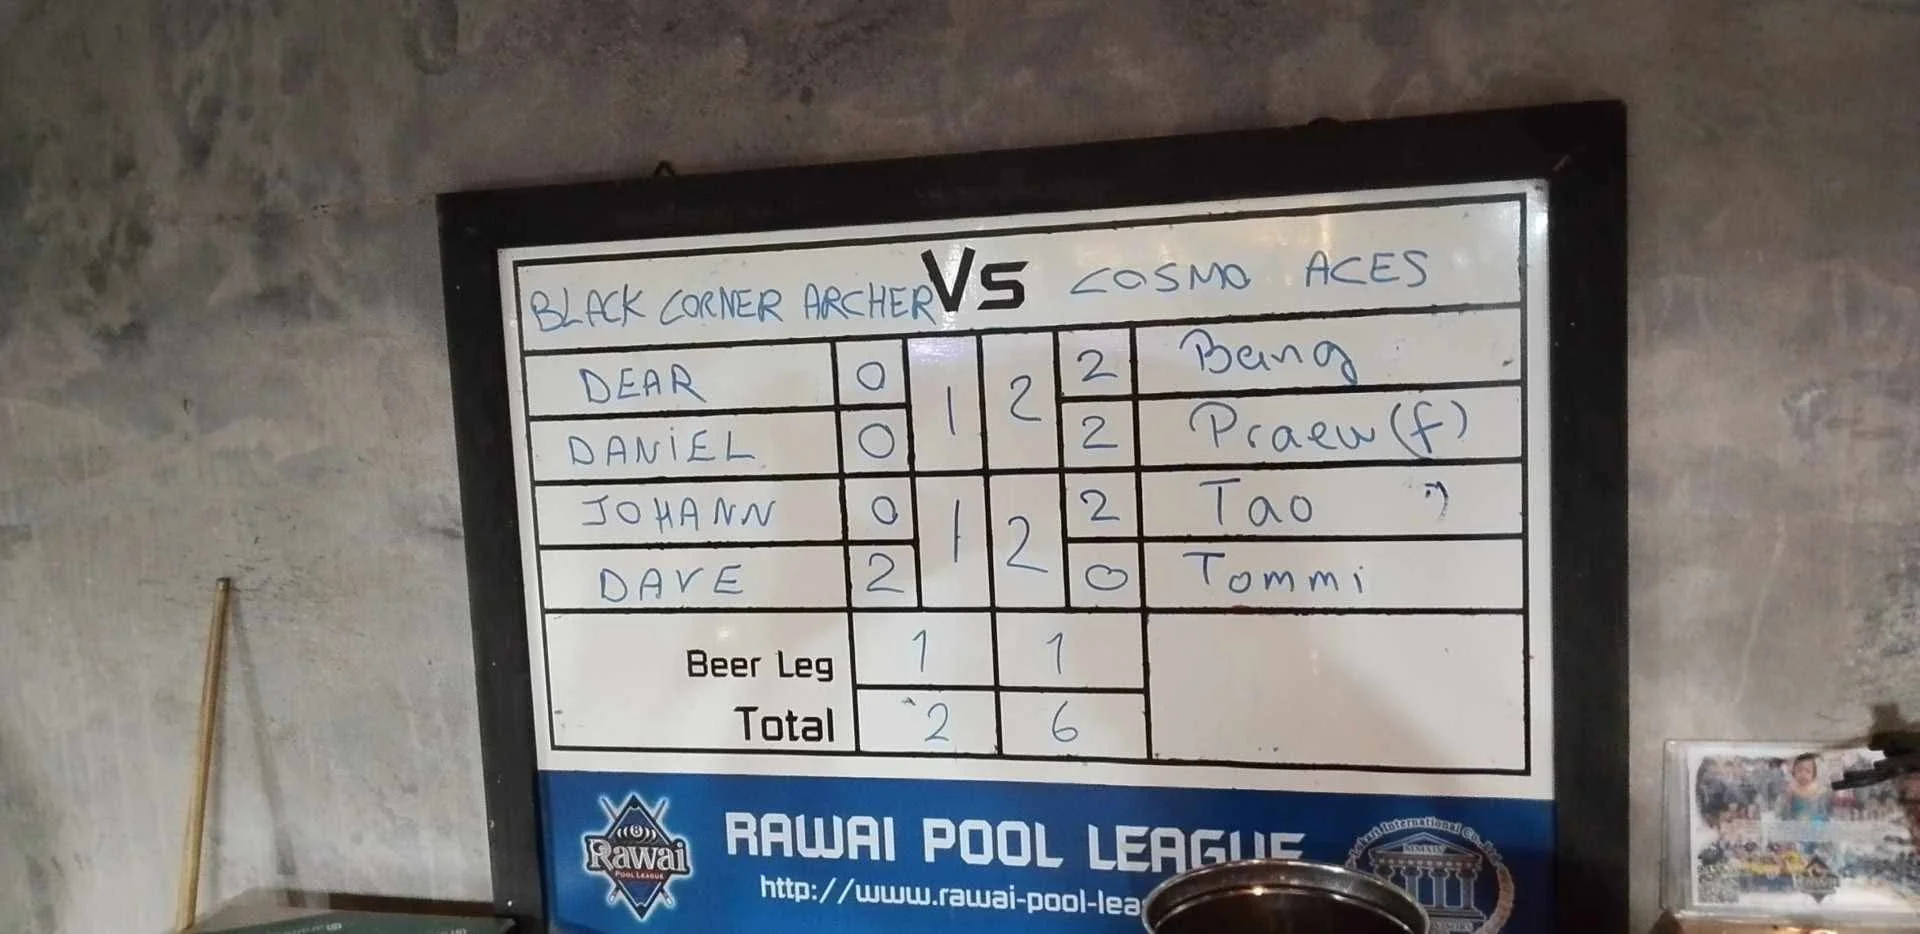 BLACK CORNER ARCHER Vs COSMO ACES
DEAR 0 1 2 2 Bang
DANiEL 0 2 Praew (f)
JOHANN 0 1 2 2 Tao
DAVE 2 0 Tommi
Beer Leg 1 1
Total 2 6
Rawai
POOL LEAGUE
RAWAI POOL LEAGUE
http://www.rawai-pool-lea
International Co.